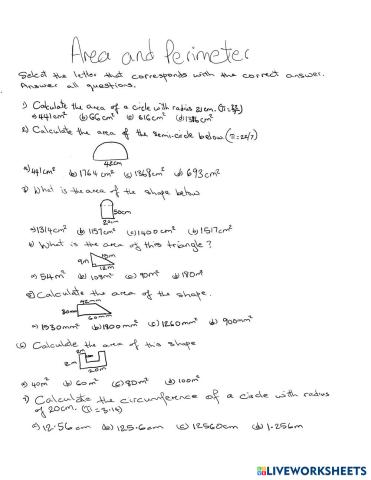 Area and Perimeter
Select the letter that corresponds with the correct answer.
Answer all questions.
1) Calculate the area of a circle with radius 21cm. (π=22/7)
a) 441cm² (b) 66cm² (c) 616cm² (d) 1386cm²
2) Calculate the area of the semi-circle below. (π=22/7)
42cm
a) 441cm² (b) 1764cm² (c) 1368cm² (d) 693cm²
What is the area of the shape below
50cm
20cm
a) 1314cm² (b) 1157cm² (c) 1400cm² (d) 1517cm²
What is the area of this triangle?
9m 15m
12m
a) 54m² (b) 108m² (c) 90m² (d) 180m²
Calculate the area of the shape.
30mm
60mm
a) 1530mm² (b) 1800mm² (c) 1260mm² (d) 900mm²
Calculate the area of this shape
2m
20m
a) 40m² (b) 60m² (c) 80m² (d) 100m²
7) Calculate the circumference of a circle with radius
of 20cm. (π=3.14)
a) 12.56cm (b) 125.6cm (c) 12560cm (d) 1.256m
LIVEWORKSHEETS